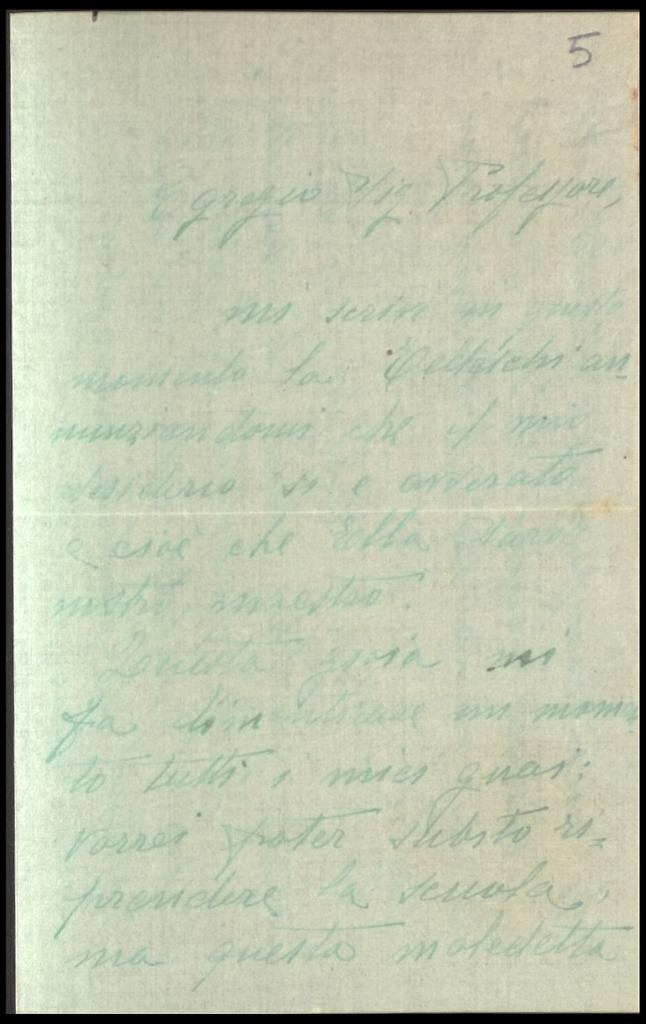 5
Egregio Sig. Professore,
mi scrive in questo
momento la an=
nunziandomi che il mio
desiderio si è avverato
e cioè che Ella sarà
nostro maestro.
Questa gioia mi
fa dimenticare un momen
to tutti i miei guai:
vorrei poter subito ri=
prendere la scuola,
ma questa maledetta